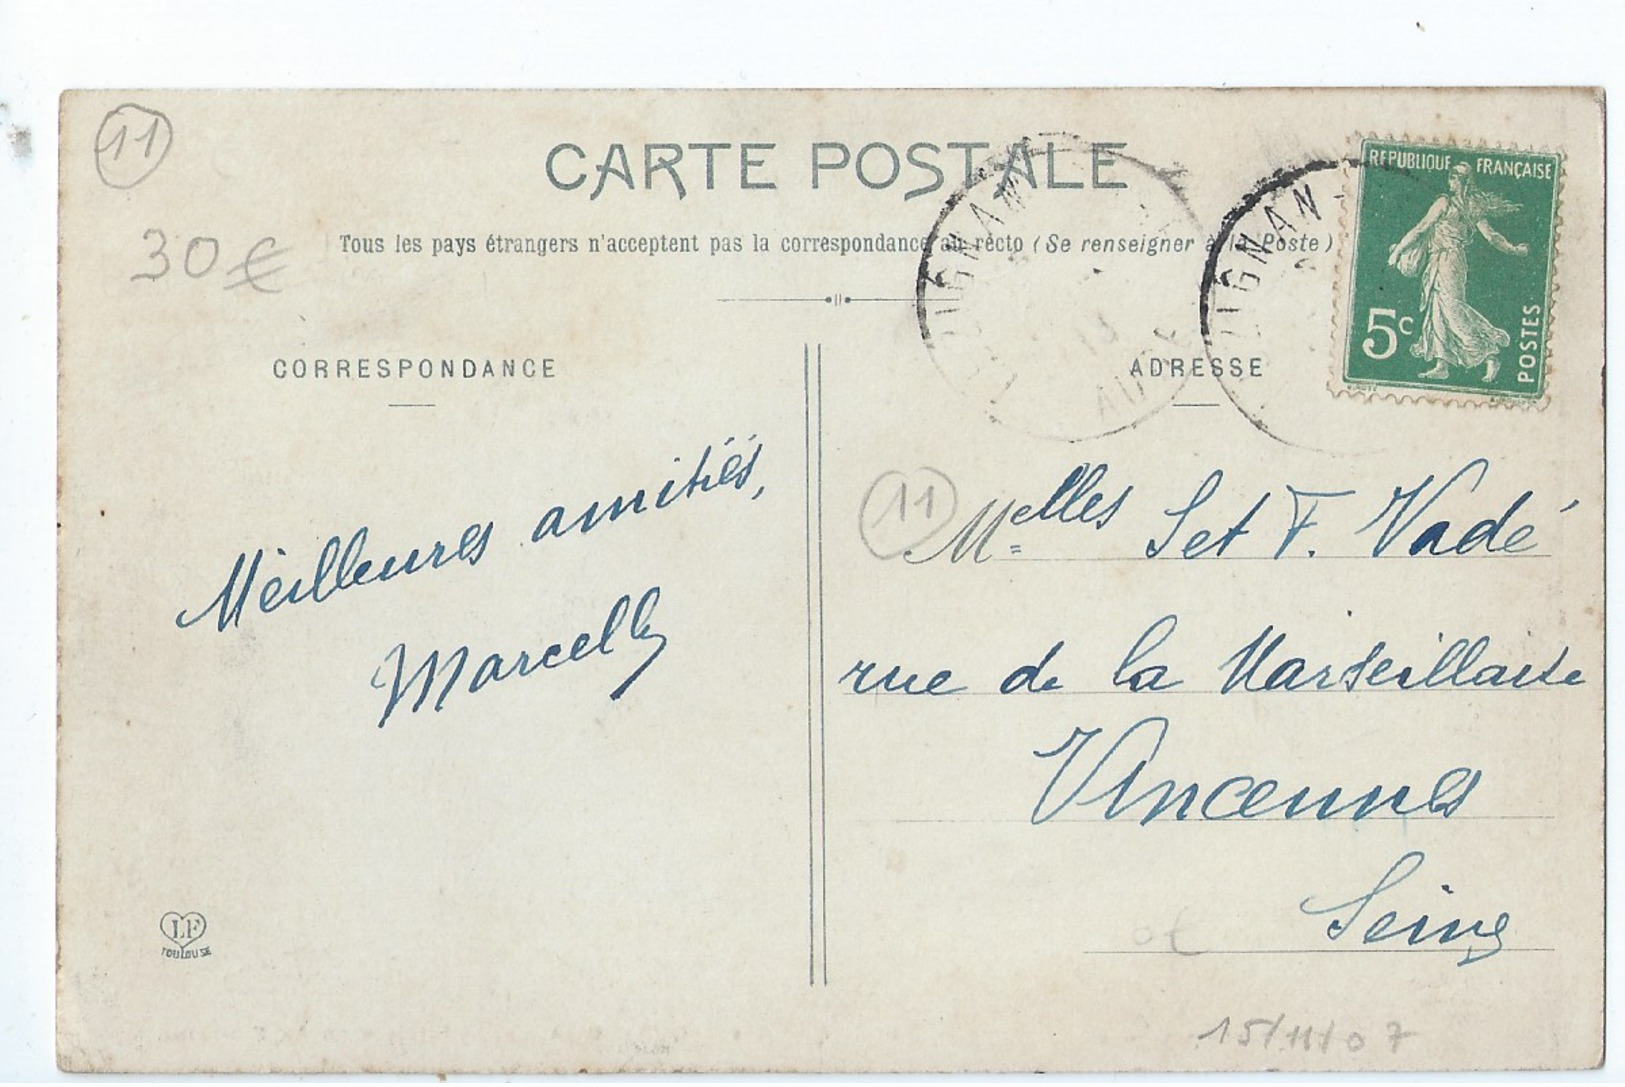 11
CARTE POSTALE
30 €
Tous les pays étrangers n'acceptent pas la correspondance au recto (Se renseigner à la Poste)
REPUBLIQUE FRANÇAISE
5c
POSTES
LÉZIGNAN
AUDE
13
CORRESPONDANCE
ADRESSE
Meilleures amitiés,
Marcelle
11
Melles S et F. Vadé
rue de la Marseillaise
Vincennes
Seine
LF
TOULOUSE
0€
15/11/07